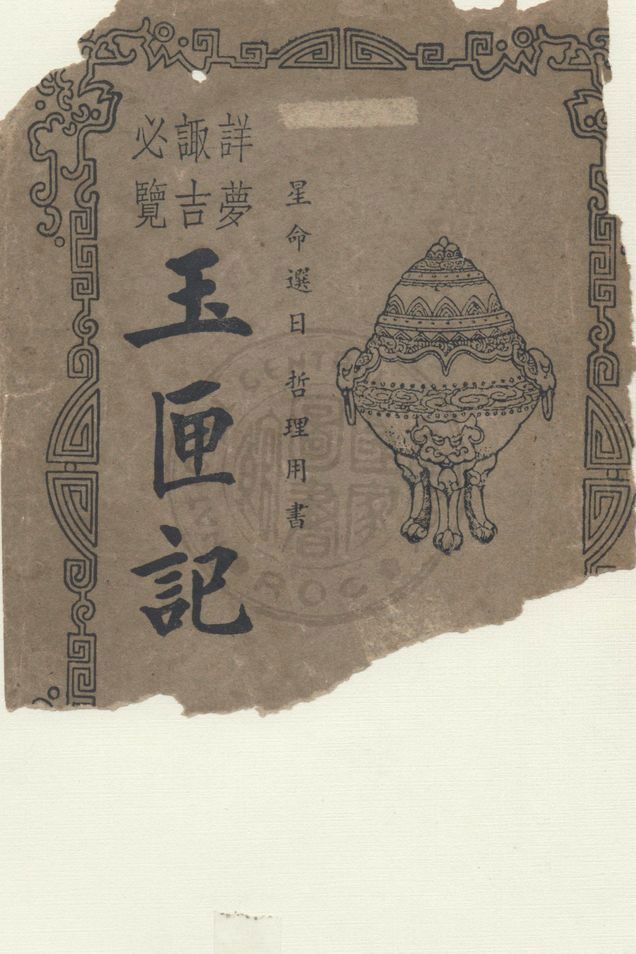 星命選日哲理用書
詳夢
諏吉
必覽
玉匣記
ROC